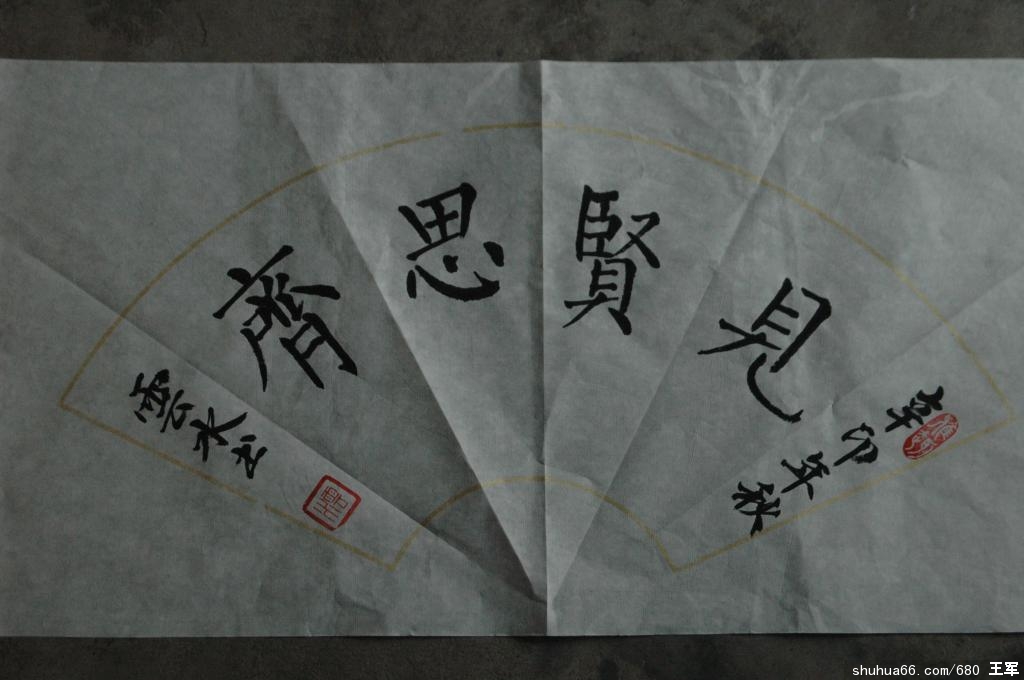 見賢思齊
辛卯年秋
雲水书
shuhua66.com/680 王军